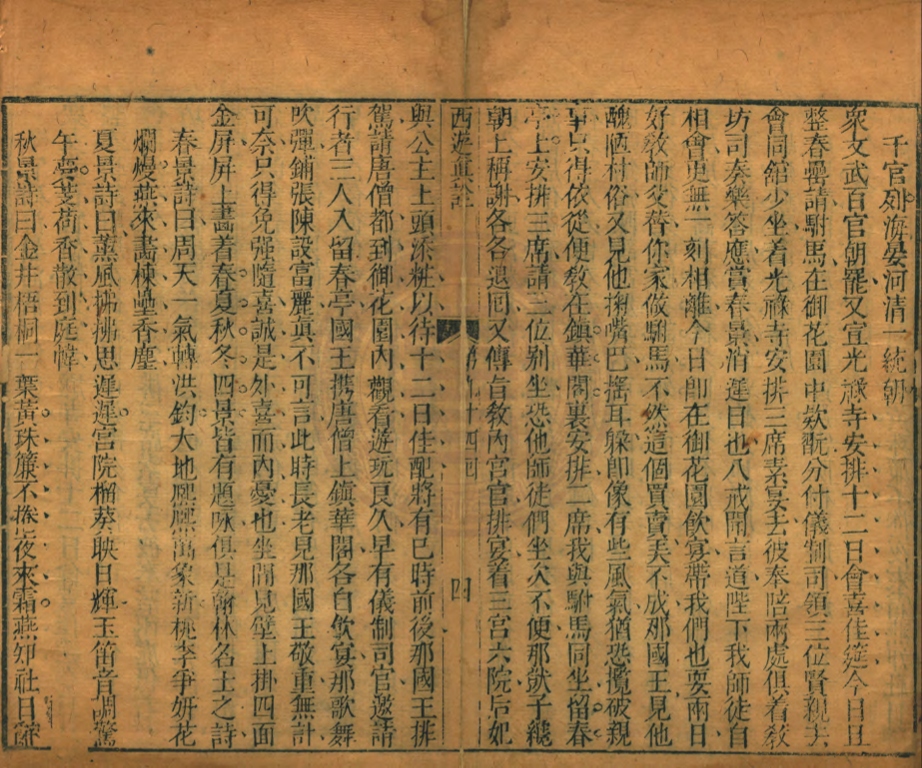 千官列海晏河清一統朝
衆文武百官朝罷又宣光祿寺安排十二日會喜佳筵今日且
整春罍請駙馬在御花園中欵翫分付儀制司領三位賢親去
會同舘少坐着光祿寺安排三席素宴去彼奉陪兩處俱着教
坊司奏樂答應賞春景消遲日也八戒聞言道陛下我師徒自
相會更無一刻相離今日卽在御花園飲宴帶我們也耍兩日
好教師父替你家做駙馬不然這個買賣夫不成那國王見他
醜陋村俗又見他揪嘴巴搖耳躲卽像有些風氣猶恐攪破親
事只得依從便教在鎮華閣裏安排二席我與駙馬同坐留春
亭上安排三席請三位别坐恐他師徒們坐次不便那獃子纔
朝上稱謝各各退囘又傳旨教內宮官排宴着三宮六院后妃
西遊眞詮
第九十四囘
四
與公主上頭添粧以待十二日佳配將有巳時前後那國王排
駕請唐僧都到御花園內觀看遊玩良久早有儀制司官邀請
行者三人入留春亭國王携唐僧上鎮華閣各自飲宴那歌舞
吹彈鋪張陳設富麗眞不可言此時長老見那國王敬重無計
可奈只得免强隨喜誠是外喜而內憂也坐間見壁上掛四面
金屏屏上畵着春夏秋冬四景皆有題咏俱是翰林名士之詩
春景詩曰周天一氣轉洪鈞大地熈熈萬象新桃李爭妍花
爛熳燕來畵棟壘香塵
夏景詩曰薰風拂拂思遲遲宮院榴葵映日輝玉笛音調驚
午夢芰荷香散到庭幃
秋景詩曰金井梧桐一葉黃珠簾不捲夜來霜燕知社日辭